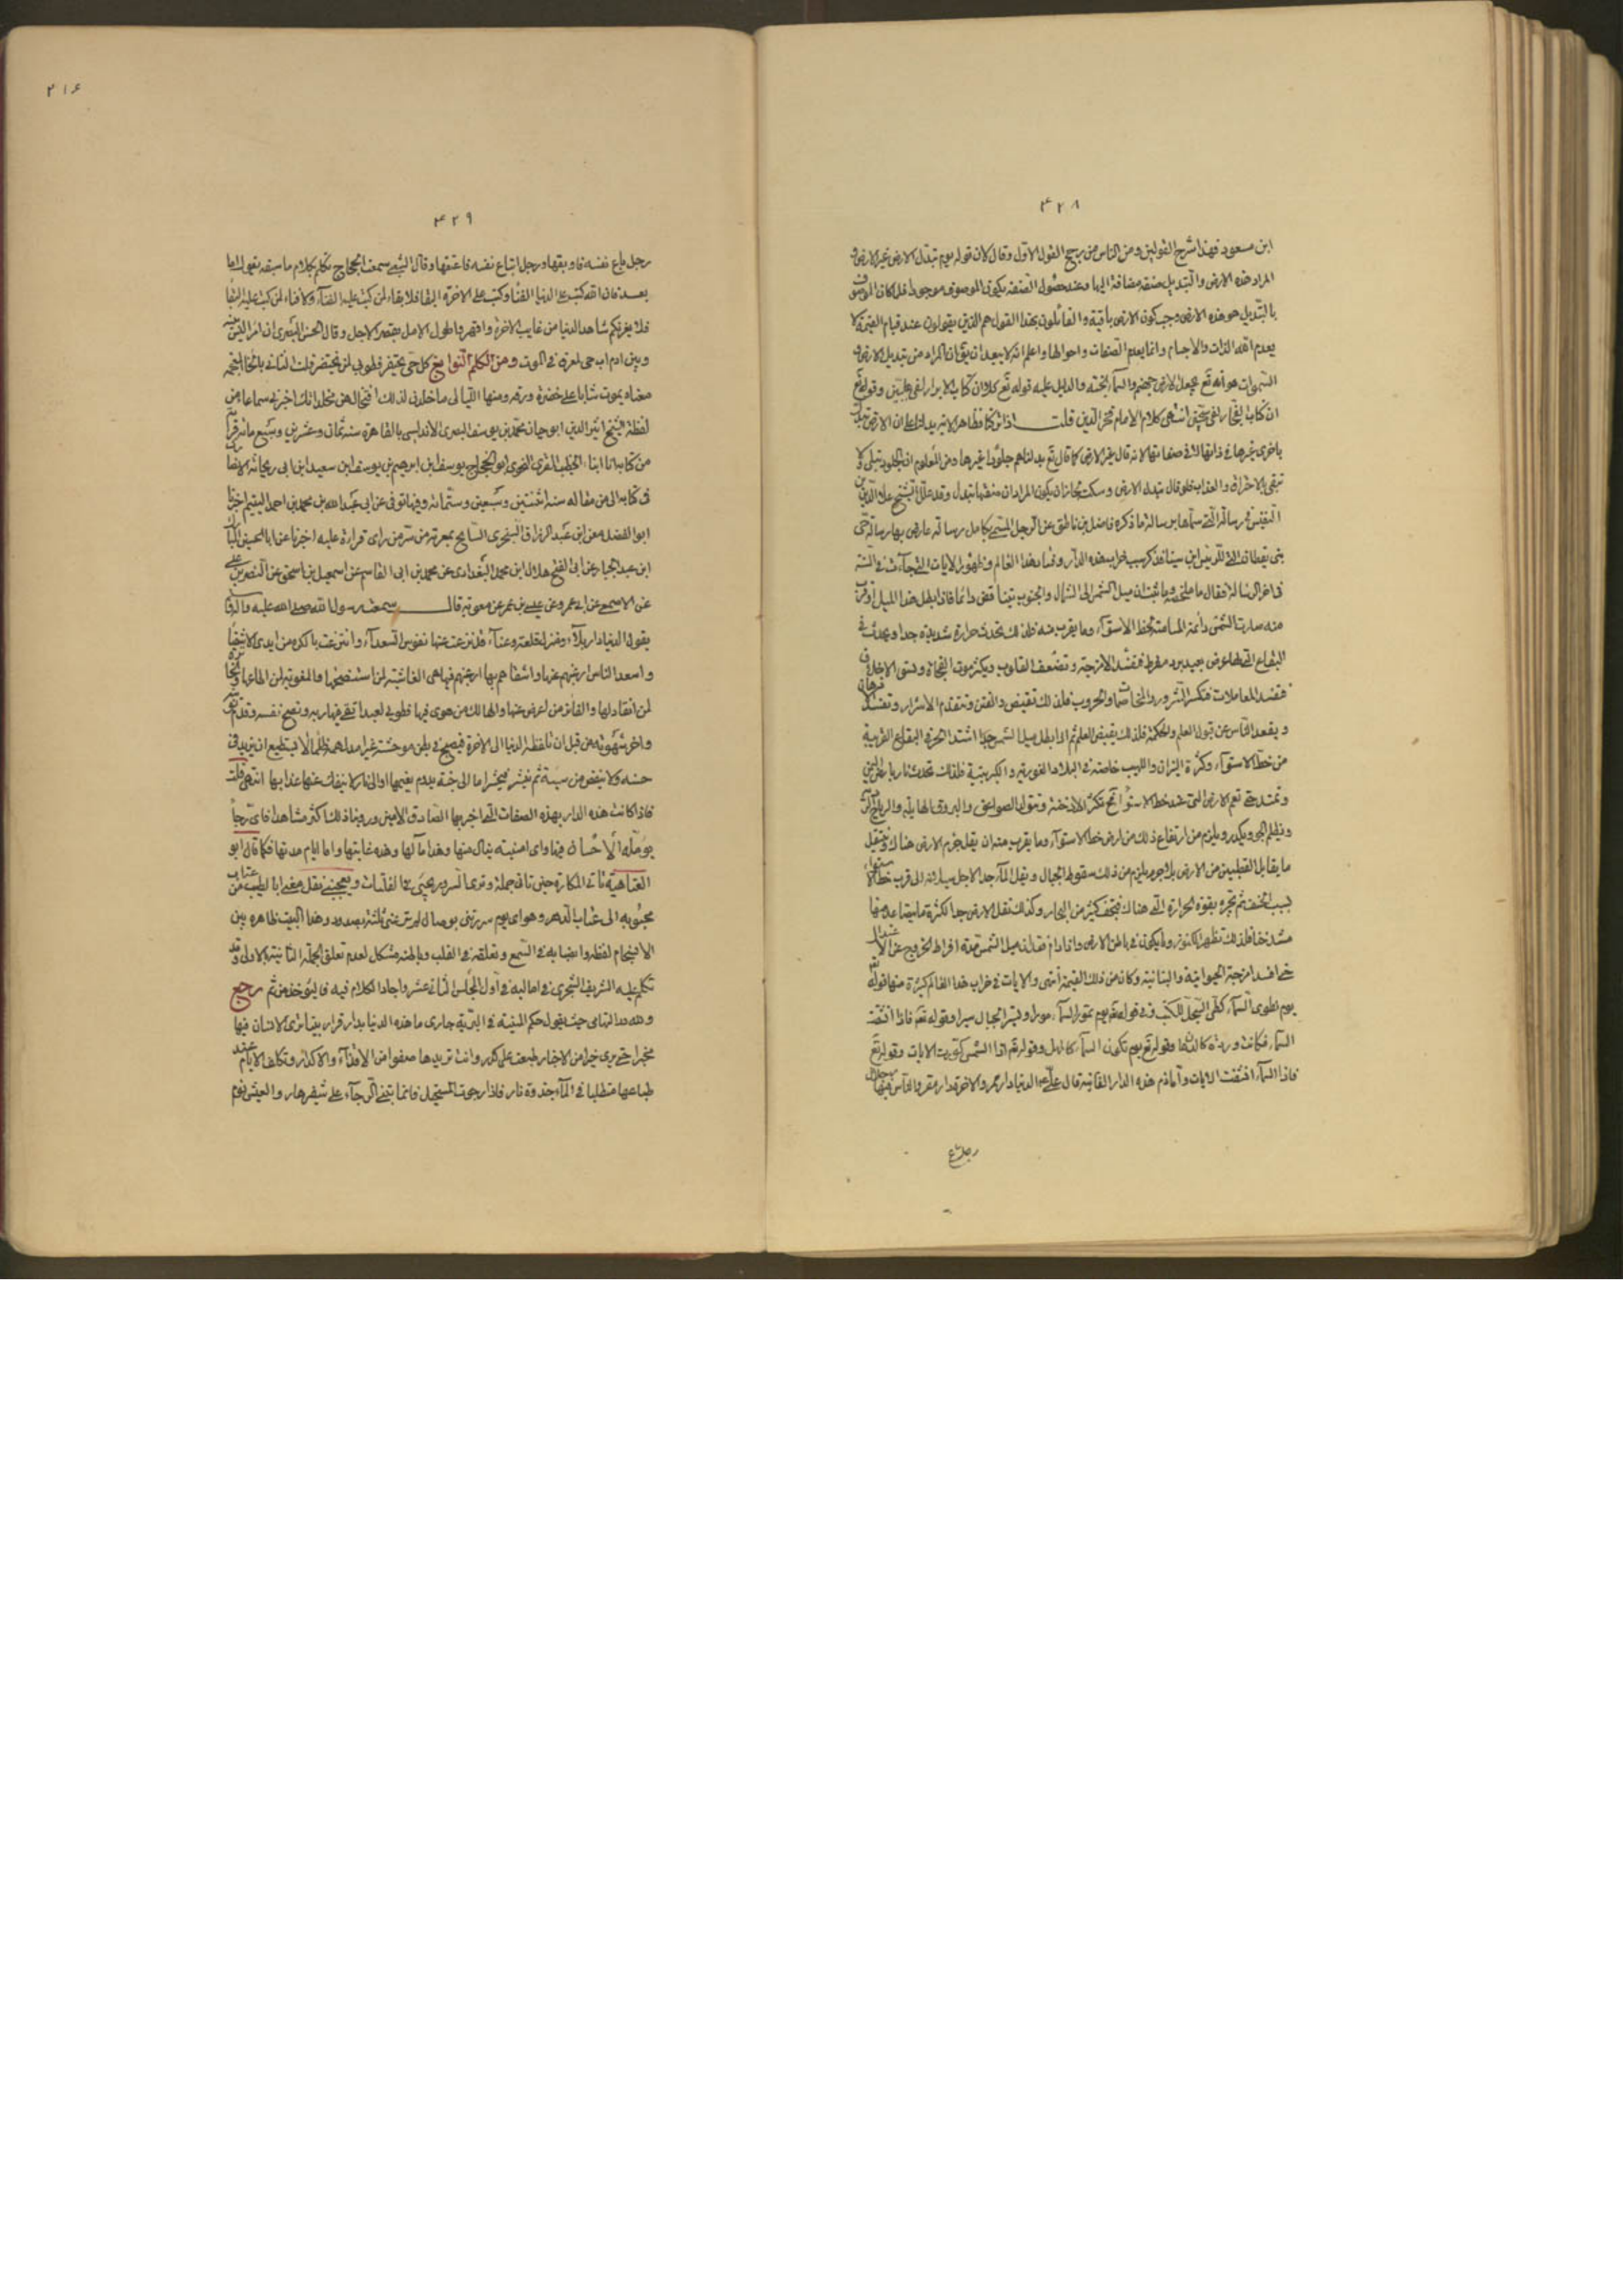 ۴۲۸
ابن مسعود فهذا شرح القولين ومن الناس من رجح القول الاول وقال لان قوله يوم تبدل الارض غير الارض و
المراد هذه الارض والتبديل صفة مضافة اليها وعند حصول الصفة يكون الموصوف موجودا فلما كان الموصوف
بالتبديل هو هذه الارض وجب كون الارض باقية والقائلون بهذا القول هم الذين يقولون عند قيام القيمة لا
يعدم الله الذات والاجسام وانما يعدم الصفات واحوالها واعلم انه لا يبعد ان يقال المراد من تبديل الارض و
السموات هو انه تع يجعل الارض جهنم والسماء الجنة والدليل عليه قوله تع كلا ان كتاب الابرار لفى عليين وقوله تع
ان كتاب الفجار لفى سجين انتهى كلام الامام فخر الدين قلت اذا
باخرى غيرها فى ذاتها لا فى صفاتها لانه قال غير الارض كما قال تع بدلناهم جلودا غيرها ومن المعلوم ان الجلود تبلى ولا
تبقى والعذاب فلو قال تبدل الارض وسكت لجاز ان يكون المراد ان صفتها تبدل وقد الشيخ علاء الدين بن
النفيس فى رسالته التى ما ذكره فاضل بن ناطق عن الرجل المسمى بكامل رسالة عارض بها رسالة حى
بن يقظان التى للرئيس ابن سينا فذكر سبب خراب هذه الدار وفساد هذا العالم وظهور الايات التى جآءت فى السنة
فى اخر الرسالة فقال ان ميل الشمس الى الشمال والجنوب يتناقص دائما فاذا بطل هذا الميل او قرب
منه صارت الشمس دائمة المسامتة لخط الاستوآء وما يقرب منه فلذلك تحدث حرارة شديدة جدا ويحدث فى
البقاع التى لها عرض بعيد برد مفرط فتفسد الامزجة وتضعف القلوب ويكثر موت الفجأة وتسوء الاخلاق
فتفسد المعاملات فتكثر الشرور والمخاصمات والحروب فلذلك الفتن وتتقدم الاشرار
ويقعد الناس عن قبول العلم والحكمة فلذلك يقبض العلم ثم اذا بطل ميل الشمس جدا اشتد الحر فى البقاع القريبة
من خط الاستوآء وكثرة النيران واللهيب خاصة فى البلاد الغورية والكبريتية فلذلك تحدث نار بارض اليمن
وتمتد حتى تعم الارض التى عند خط الاستوآء ثم تكثر الادخنة وتتولد الصواعق والبروق
ويظلم الجو ويكدر ويلزم من ارتفاع ذلك من ارض خط الاستوآء وما يقرب منه ان يقل جرم الارض هناك
ما يقابل القطبين من الارض بلا جرم يلزم من ذلك سقوط الجبال ويقل المآء جدا لاجل سيلانه الى قرب خط الاستوآء
بسبب ثم تبخره بقوة الحرارة التى هناك كثير من البخار وكذلك تقل الارض جدا لكثرة ما يتصاعد منها
فلذلك تظهر الكنوز وما يكون فى باطن الارض واذا دام فقدان ميل الشمس مدة افراط الخروج عن الاعتدال
امزجة الحيوانية والنباتية وكان من ذلك القيمة انتهى والايات فى خراب هذا العالم كثيرة منها قوله تع
يوم نطوى السمآء كطى السجل للكتب وفى قوله تع يوم تمور السمآء مورا وتسير الجبال سيرا وقوله تع فاذا انشقت
السمآء فكانت وردة كالدهان وقوله تع يوم تكون السمآء كالمهل وقوله تع اذا الشمس كورت الايات وقوله تع
فاذا السمآء انشقت الايات واما ذم هذه الدار الفانية قال على الدنيا دار ممر والاخرة دار مقر والناس فيها رجلان
رجل باع
۲۱۶
۴۲۹
رجل باع نفسه فاوبقها ورجل ابتاع نفسه فاعتقها وقال الشعبى سمعت الحجاج تكلم بكلام ما سبقه يقول اما
بعد فان الله كتب على الدنيا الفنا وكتب على الاخرة البقا فلا بقاء لمن كتب عليه الفنآء ولا فناء لمن كتب عليه البقا
فلا يغرنكم شاهد الدنيا من غايب الاخرة واقهروا طول الامل بقصر الاجل وقال الحسن البصرى ان امرأ ليس بينه
وبين ادم اب حى لمعرق فى الموت ومن الكلم النوابغ كل حى يحتضر فطوبى لمن يختضر قلت الثانى بالخا المعجمة
معناه يموت شابا على خضرة ومنها الليالى ما خلدن لذلك افتخالهن مخلداتك اخبرنى سماعا من
لفظه الشيخ اثير الدين ابو حيان محمد بن يوسف البصرى الاندلسى بالقاهرة سنة ثمان وعشرين وسبع مائة
من كتابه انا الخطيب المقرى النحوى ابو الحجاج يوسف بن ابرهيم بن يوسف ابن سعيد ابن ابى ريحانة الانصا
فى كتابه الى من مقاله سنة اثنتين وسبعين وستمائة وفيها توفى عن ابى عبد الله بن محمد بن احمد اليتيم اخبرنا
ابو الفضل
ابن عبد الجبار عن ابى الفتح هلال ابن محمد البغدادى عن محمد بن ابى القاسم عن اسمعيل بن اسحق عن النضر بن على
عن الاصمعى عن ابى عمرو عن عيسى بن عمر عن معوية قال سمعت رسول الله صلى الله عليه واله
يقول الدنيا دار بلآء ومنزل قلعة وعنآء قد نزعت عنها نفوس السعدآء وانتزعت بالكره من ايدى الاشقيا
واسعد الناس ارغبهم عنها واشقاهم بها ارغبهم فيها هى الغاشة لمن استنصحها والمغوية لمن اطاعها
لمن انقاد لها والفائز من اعرض عنها والهالك من هوى فيها فطوبى لعبد اتقى فيها ربه ونصح نفسه وقدم توبته
واخر شهوته من قبل ان تلفظه الدنيا الى الاخرة فيصبح فى بطن موحشة غبرا مدلهمة ظلما لا يستطيع ان يزيد فى
حسنة ولا ينقص من سيئة ثم ينشر فيحشر اما الى جنة يدوم نعيمها او الى نار لا ينفك عنها عذابها انتهى قلت
فاذا كانت هذه الدار بهذه الصفات التى اخبر بها الصادق الامين وروينا ذلك اكثر مشاهدا فاى رجآ
يؤمله الانسان فيها واى امنية ينال منها وهذا مآلها وهذه غايتها واما ايام مدتها فكما قال ابو
العتاهية تاتى المكارة حين تاتى جملة وترى السرور يجىء فى الفلتات ويعجبنى نقل معنى ابا الطيب من عتاب
محبوبه الى عتاب الدهر وهو اى يوم سررتنى بوصال لم ترعنى ثلثة بصدود وهذا البيت ظاهره بين
الانسجام لفظه وانصبابه فى السمع وتعلقه فى القلب وباطنه مشكل لعدم تعلق الجملة الثانية بالاولى وقد
تكلم عليه الشريف الشجرى فى اماليه فى اول المجلس الثانى عشر واجاد الكلام فيه فليؤخذ من ثم رجع
ولله در التهامى حيث يقول حكم المنية فى البرية جارى ما هذه الدنيا بدار قرار بينا ترى الانسان فيها
مخبرا حتى يرى خبرا من الاخبار طبعت على كدر وانت تريدها صفوا من الاقذآء والاكدار ومكلف الايام ضد
طباعها متطلب فى المآء جذوة نار فاذا رجوت المستحيل فانما تبنى الرجآء على شفير هار والعيش نوم